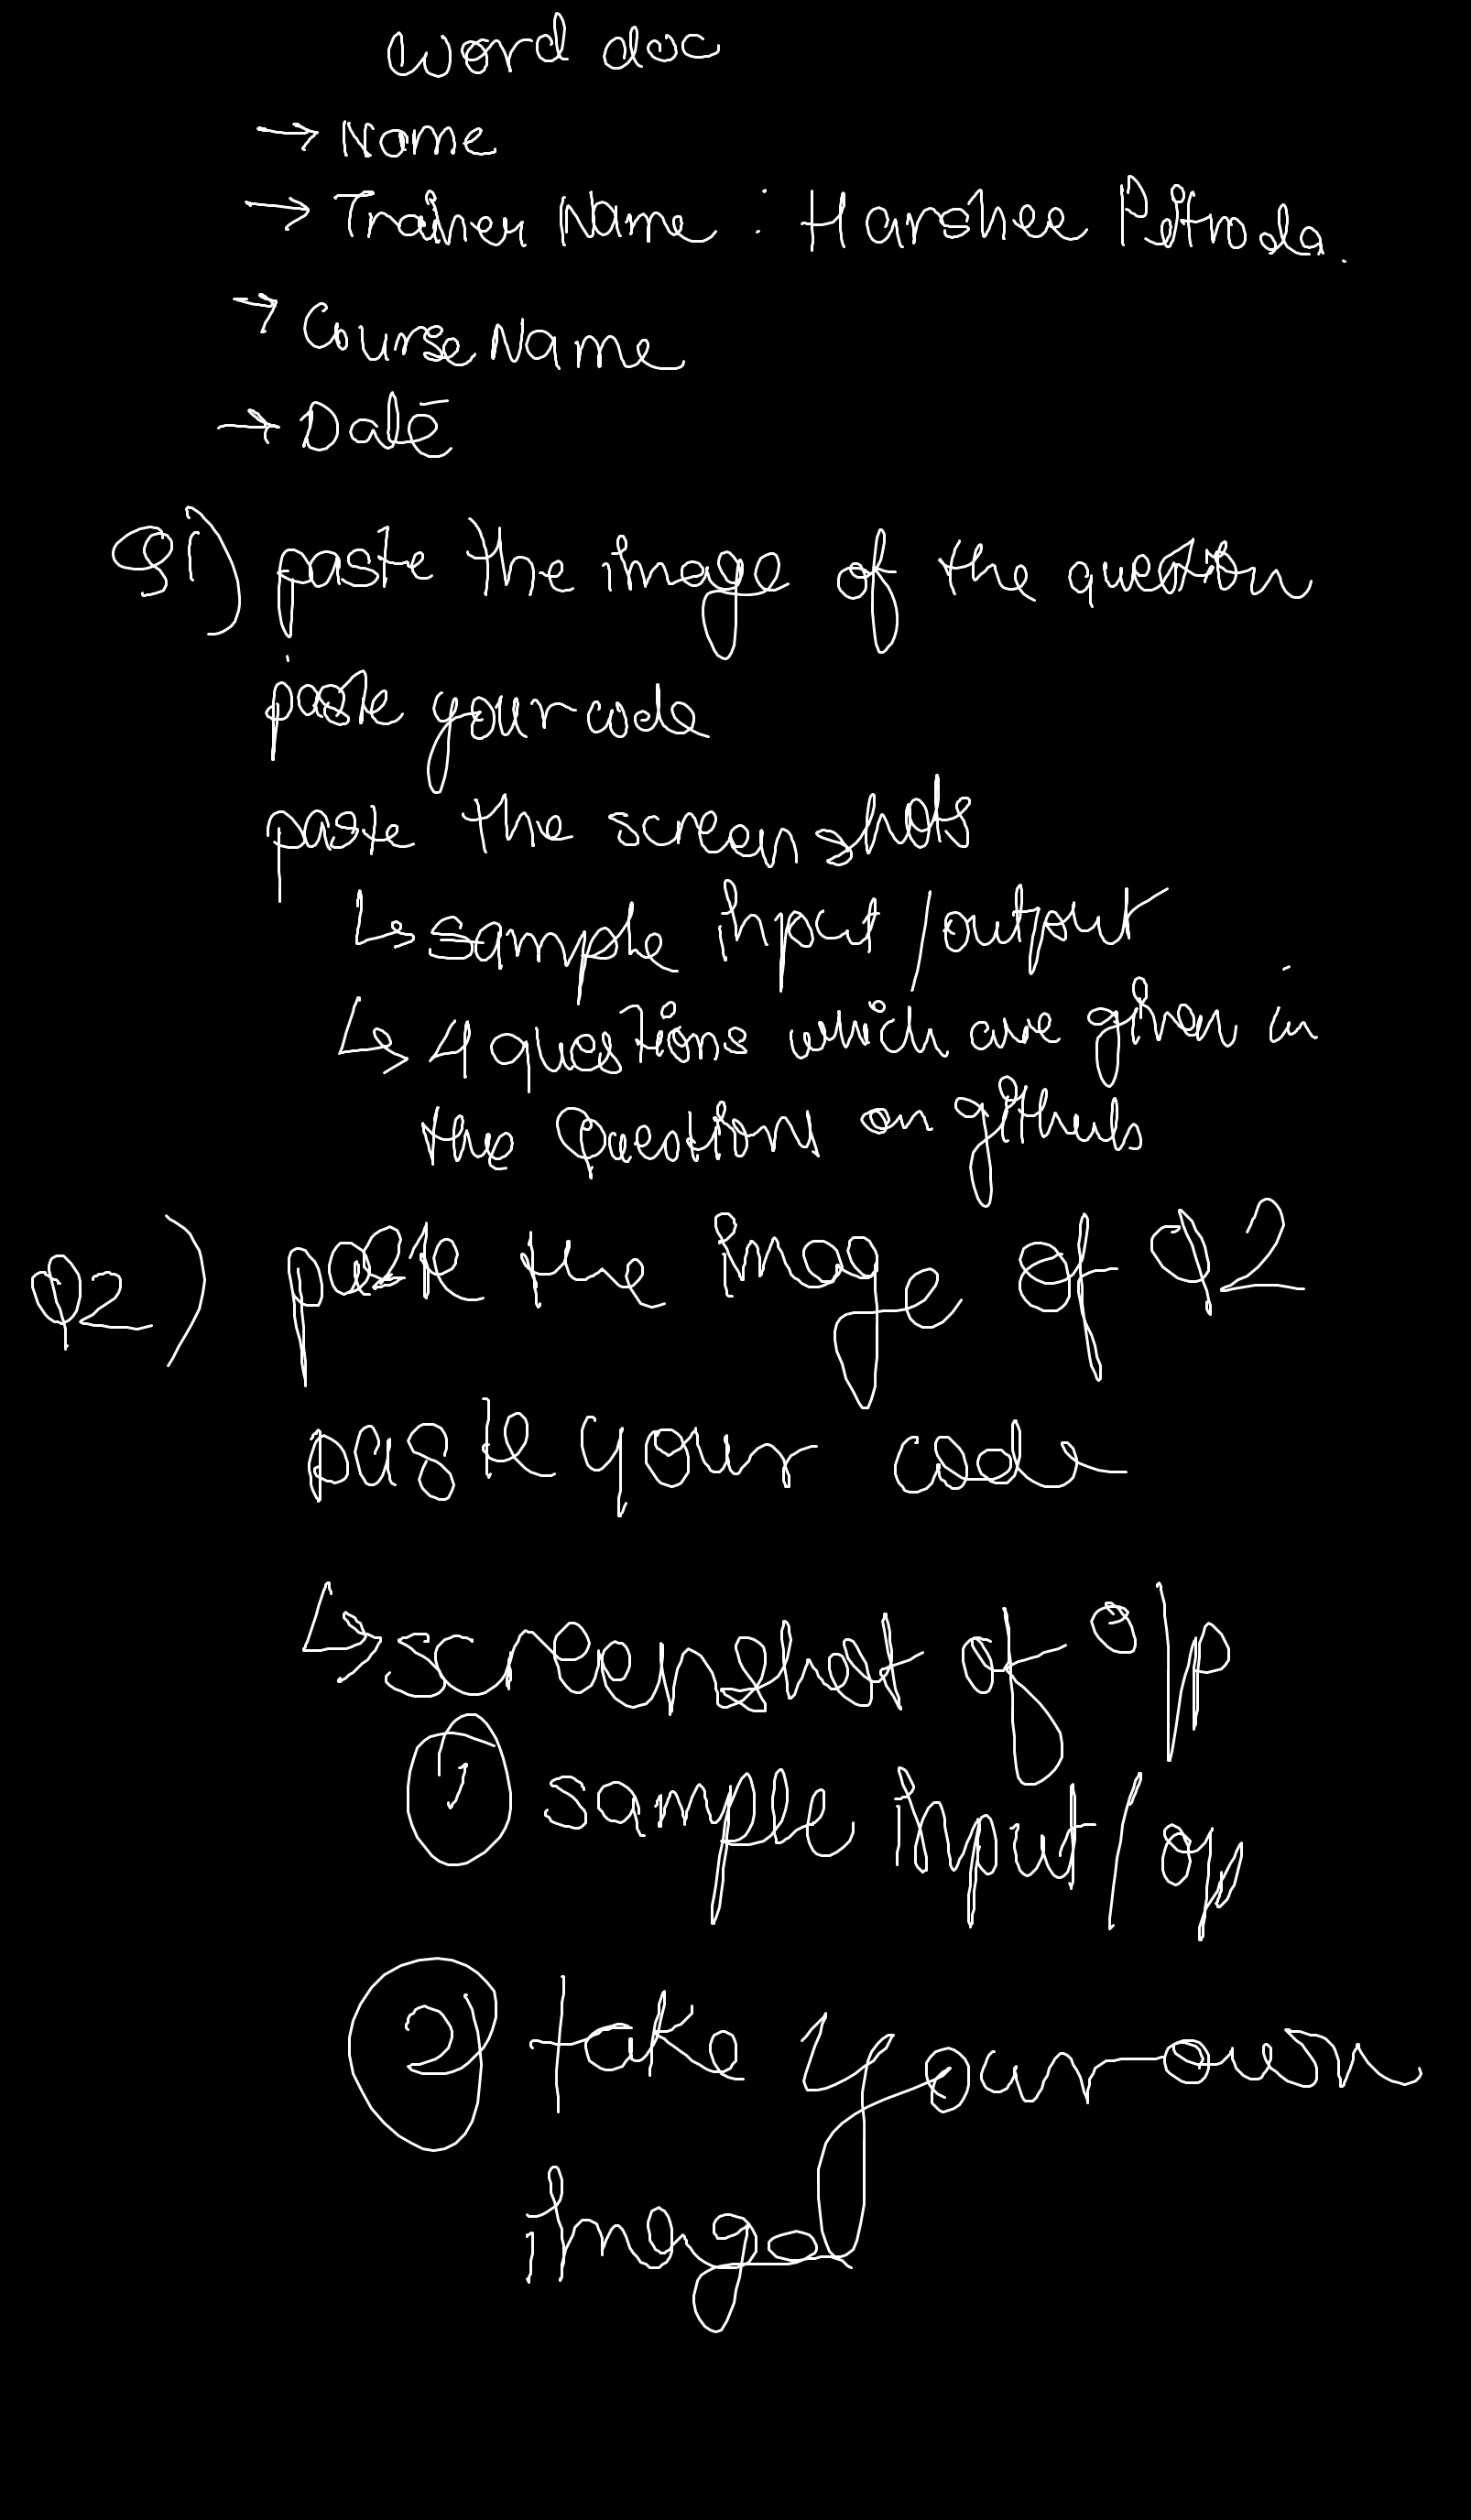 word doc
→ Name
→ Trainer Name : Harshee Pitroda.
→ Course Name
→ Date
Q1) paste the image of the question
paste your code
paste the screenshots
↳ sample input/output
↳ 4 questions which are given in
the Questions on github
Q2) paste the image of Q2
paste your code
↳ screenshot of o/p
① sample input/op
② take your own
image